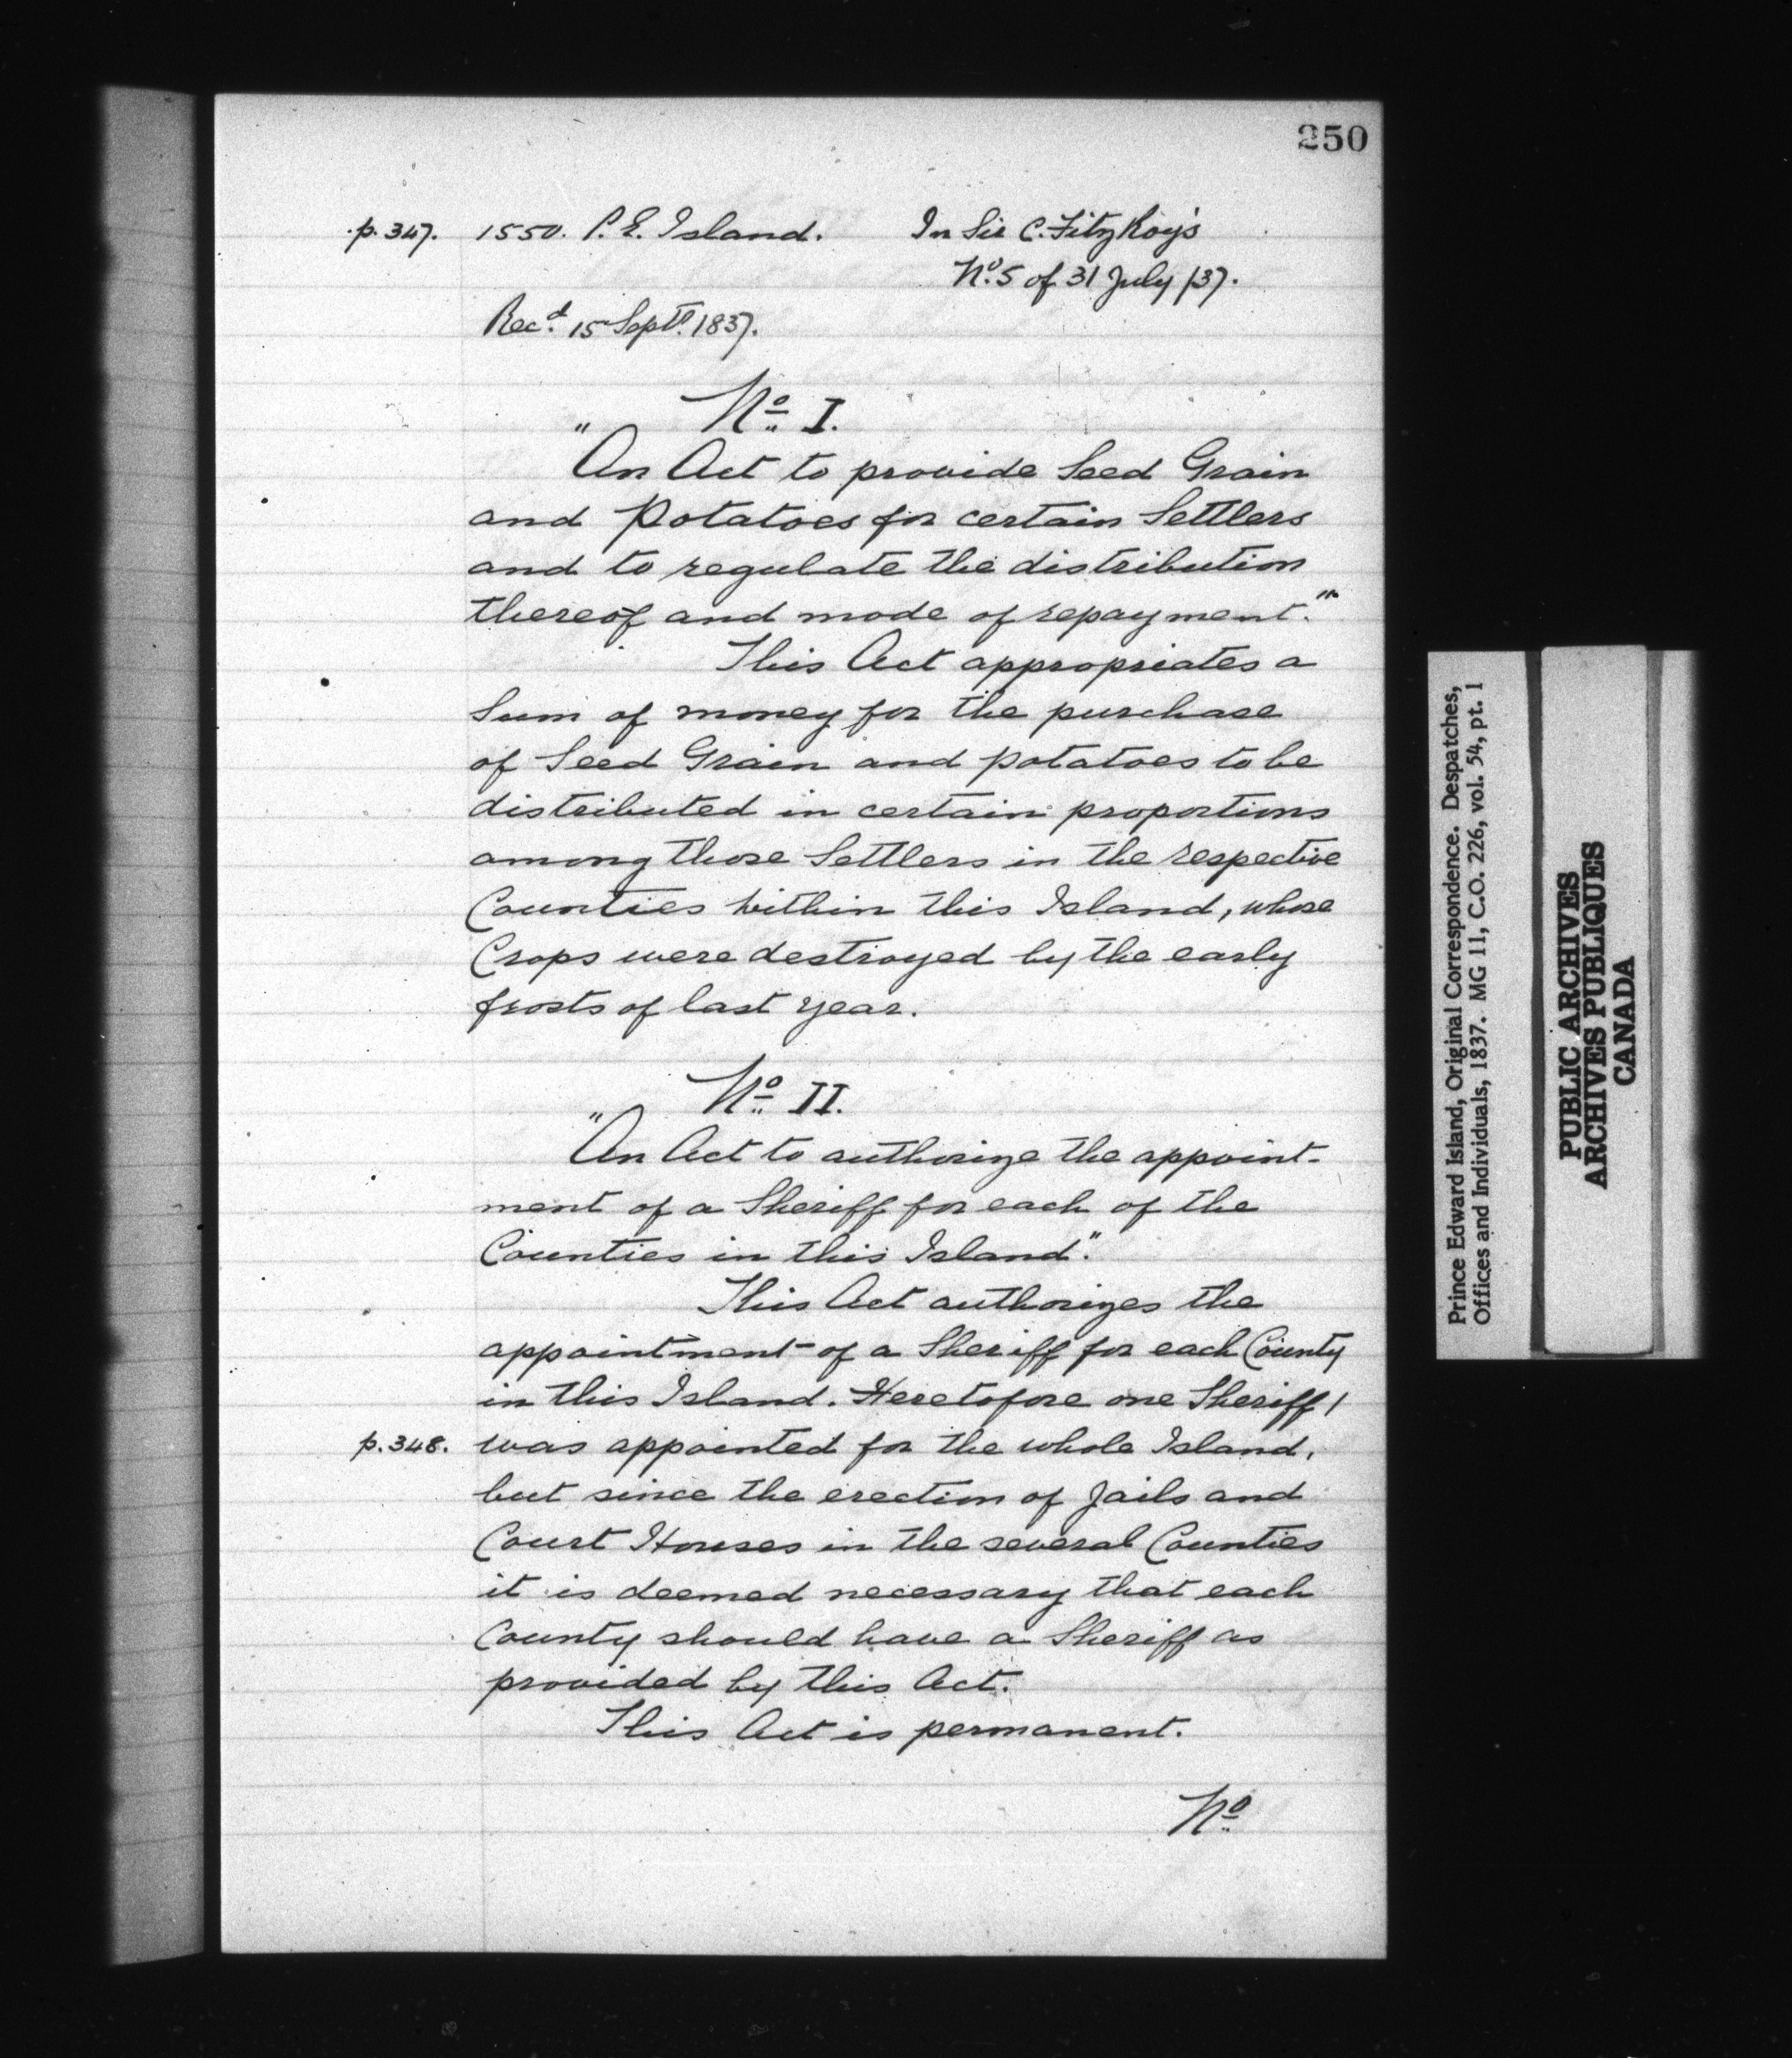 250
p. 347. 1550. P. E. Island. In Sir C. FitzRoy's
No. 5 of 31 July /37.
Recd. 15 Sept. 1837.
No. I.
"An Act to provide Seed Grain
and Potatoes for certain Settlers
and to regulate the distribution
thereof and mode of repayment."
This Act appropriates a
Sum of money for the purchase
of Seed Grain and potatoes to be
distributed in certain proportions
among those Settlers in the respective
Counties within this Island, whose
Crops were destroyed by the early
frosts of last year.
No. II.
"An Act to authorize the appoint-
ment of a Sheriff for each of the
Counties in this Island."
This Act authorizes the
appointment of a Sheriff for each County
in this Island. Heretofore one Sheriff /
p. 348. was appointed for the whole Island,
but since the erection of Jails and
Court Houses in the several Counties
it is deemed necessary that each
County should have a Sheriff as
provided by this Act.
This Act is permanent.
No.
Prince Edward Island, Original Correspondence. Despatches,
Offices and Individuals, 1837. MG 11, C.O. 226, vol. 54, pt. 1
PUBLIC ARCHIVES
ARCHIVES PUBLIQUES
CANADA